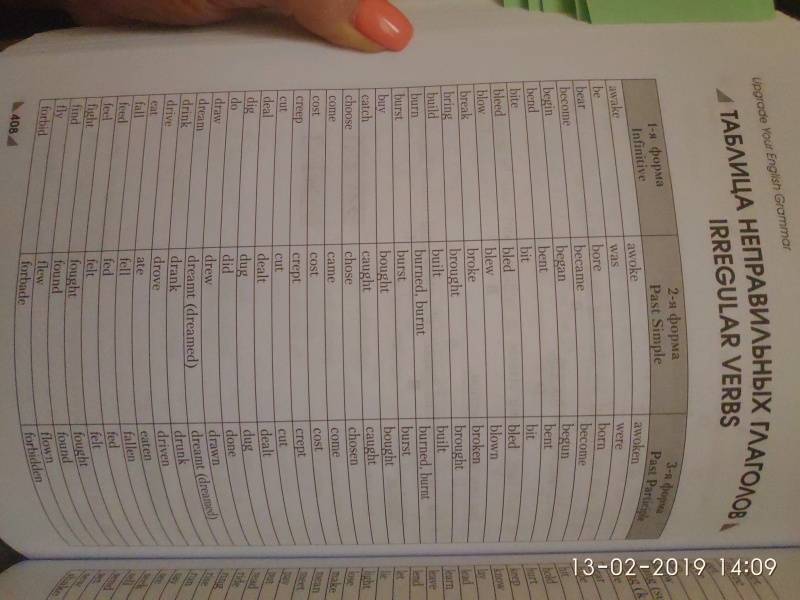 Upgrade Your English Grammar
ТАБЛИЦА НЕПРАВИЛЬНЫХ ГЛАГОЛОВ
IRREGULAR VERBS
1-я форма Infinitive 2-я форма Past Simple 3-я форма Past Participle
awake awoke awoken
be was were
bear bore born
become became become
begin began begun
bend bent bent
bite bit bit
bleed bled bled
blow blew blown
break broke broken
bring brought brought
build built built
burn burned, burnt burned, burnt
burst burst burst
buy bought bought
catch caught caught
choose chose chosen
come came come
cost cost cost
creep crept crept
cut cut cut
deal dealt dealt
dig dug dug
do did done
draw drew drawn
dream dreamt (dreamed) dreamt (dreamed)
drink drank drunk
drive drove driven
eat ate eaten
fall fell fallen
feed fed fed
feel felt felt
fight fought fought
find found found
fly flew flown
forbid forbade forbidden
408
hold
hurt
keep
know
lay
lead
learn
leave
lend
let
lie
light
lose
make
mean
meet
13-02-2019 14:09